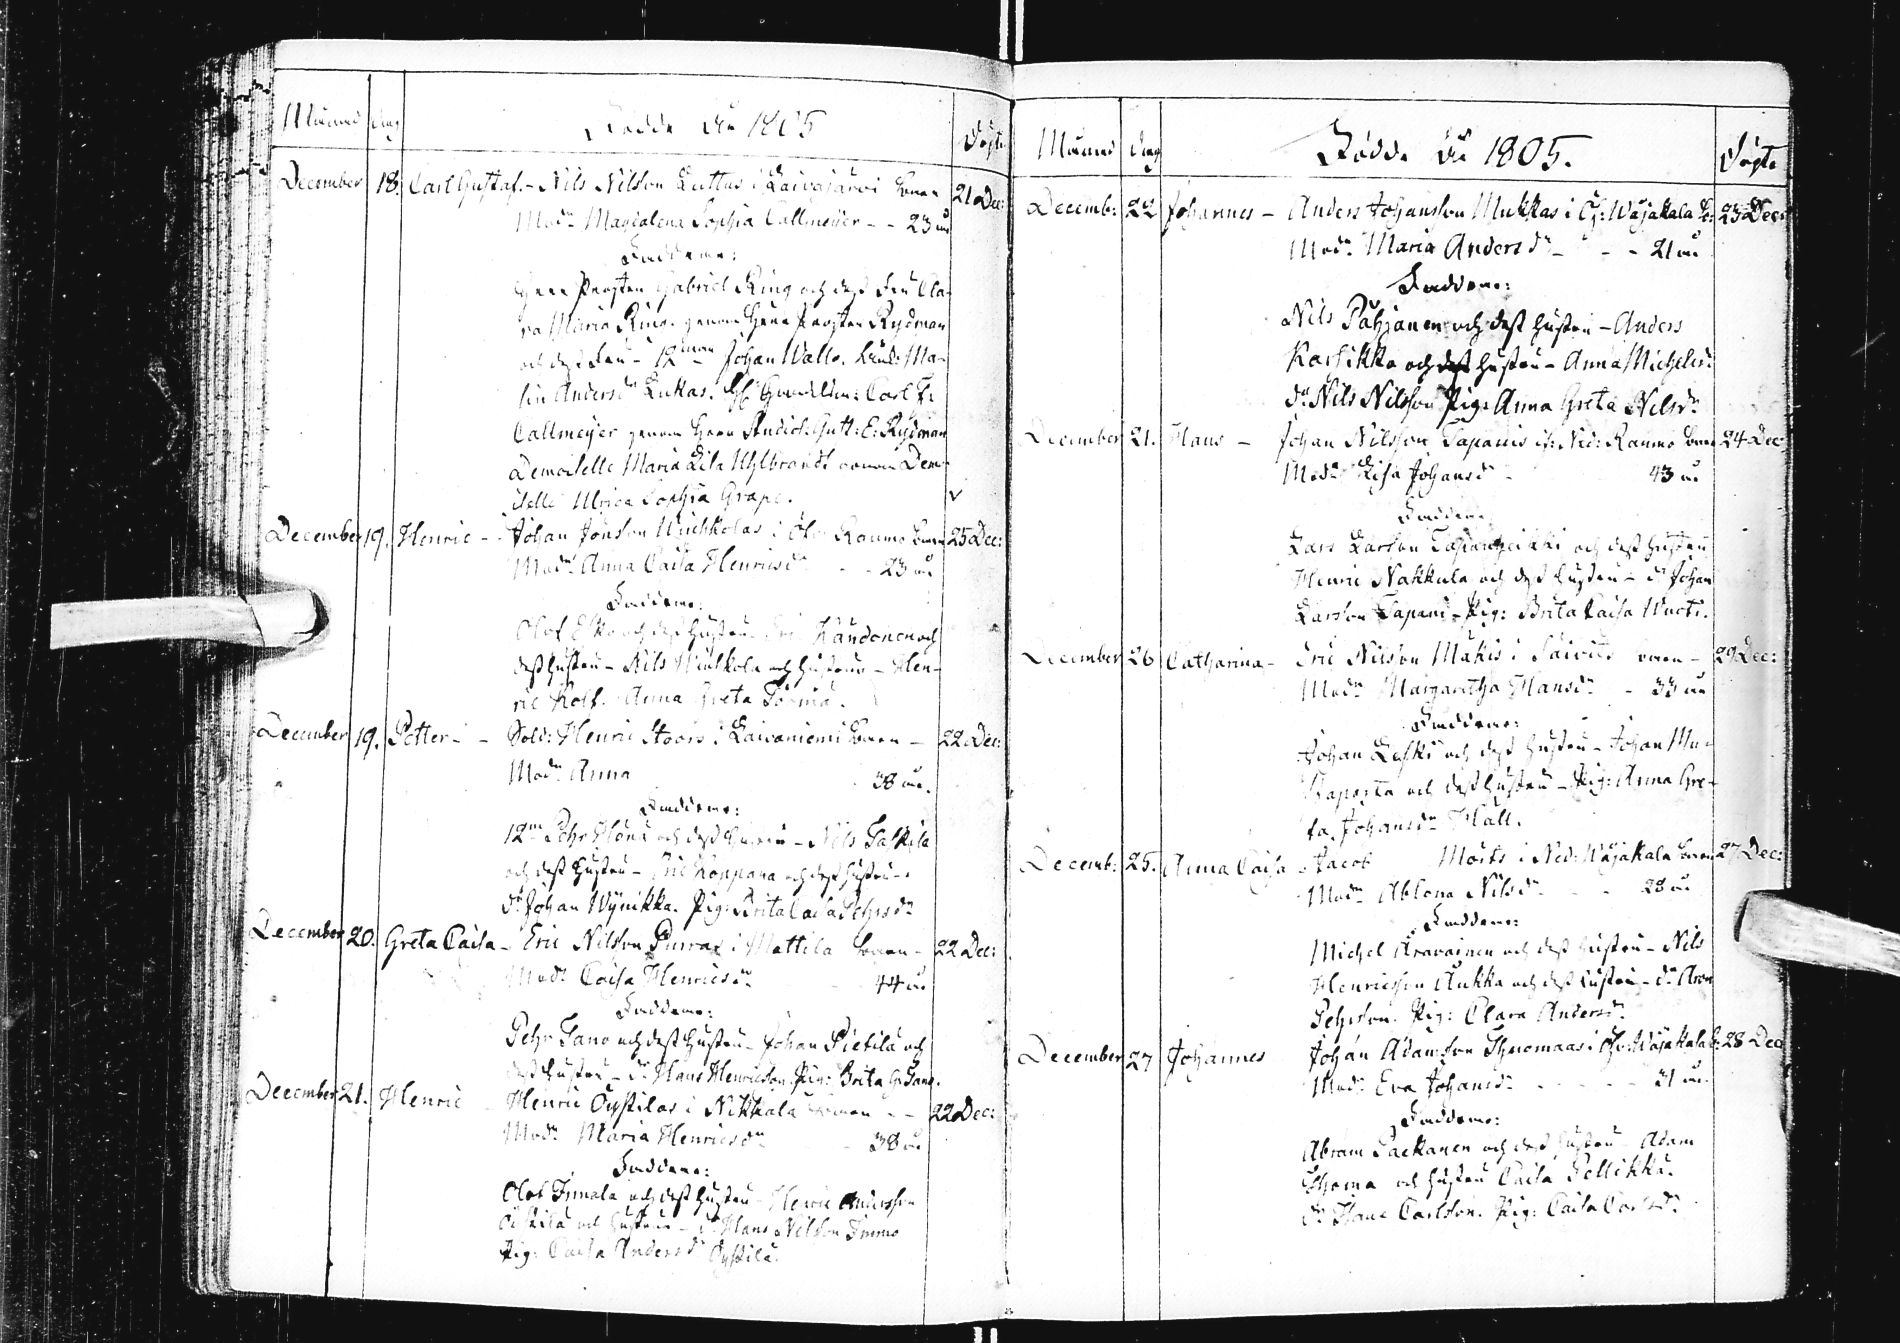 Månad dag Födde År 1805 Döpte
December 18. Carl Gustaf. - Nils Nilsson Luttus i Laivajärvi barn 21 Dec:
Modr Magdalena Sophia Callmeijer - - 23 år
Faddrar:
Herr Prosten Gabriel Ring och dess Fru Cla-
ra Maria Ring. genom Herr Prosten Rydman
och dess Fru - 12man Johan Wallo. Ma-
Anders dr Luttas. Carl F:
Callmeijer genom Herr Studios: Gust: E: Rydman
Demoiselle Maria Lisa Uhlbrandt genom Dem-
iselle Ulrica Sophia Grape.
December 19. Henric - - Johan Jönsson i Öfr Raumo barn 25 Dec:
Modr Anna Caisa Henricsdr - - 23 år
Faddrar:
Olof och dess hustru Eric och
dess hustru - Nils och hustrun - Hen-
ric Rolf. Anna Greta
December 19. Petter - - Sold: Henric Stoors i Laivaniemi barn - 22 Dec:
Modr Anna 38 år.
Faddrar:
12m Pehr och dess hustru - Nils
och dess hustru - Eric Koppana och dess hustru -
dr Johan Wynikka. Pig: Brita Caisa Pehrsdr
December 20. Greta Caisa - Eric Nilsson Purras i Mattila barn - 22 Dec:
Modr Caisa Henricsdr 44 år
Faddrar:
Pehr Sano och dess hustru - Johan Pietilä och
dess hustru - dr Hans Henricson. Pig: Brita Gr: Sano.
December 21. Henric - Henric Öystilas i Nikkala barn - - 22 Dec:
Modr Maria Henricsdr - 38 år
Faddrar:
Olof Innala och dess hustru - Henric Andersson
Öystilä och hustrun - dr Hans Nilsson Immo
Pig: Caisa Andersdr Öystilä.
Månad dag Födde År 1805. Döpte
Decemb: 22 Johannes - Anders Johansson Mukkas i Ö: Wäjakala b: 23 Dec:
Modr Maria Andersdr - - - 21 år
Faddrar:
Nils Pahjanen och dess hustru - Anders
Karsikko och dess hustru - Anna Michels
dr Nils Nilsson Pig: Anna Greta Nilsdr
December 21. Hans - Johan Nilsson Tapanis i Ned: Raumo barn 24 Dec
Modr Lisa Johansdr - 43 år
Faddrar
Lars Larsson och dess hustru
Henric Nakkula och dess hustru - dr Johan
Larsson Tapani - Pig: Brita Caisa
December 26 Catharina - Eric Nilsson Mäkis i Säivits barn - 29 Dec:
Modr Margaretha Hansdr - 33 år
Faddrar:
Johan och dess hustru - Johan
och dess hustru - Pig: Anna Gre-
ta Johansdr Hall.
Decemb: 25. Anna Caisa Jacob i Ned: Wäjakala barn 27 Dec:
Modr Ablona Nilsdr - - 28 år
Faddrar:
Michel Aravainen och dess hustru - Nils
Henricsson Kukka och dess hustru - dr Aron
Pehrson. Pig: Clara Andersdr
December 27 Johannes Johan Adamsson Thuomaas i Öfr: Wäjakala b: 28 Dec
Modr Eva Johansdr - - - - 31 år
Faddrar:
Abram Packanen och dess hustru Adam
Thoma och hustru Caisa Pellikka.
dr Isaac Carlsson. Pig: Caisa Carlsdr